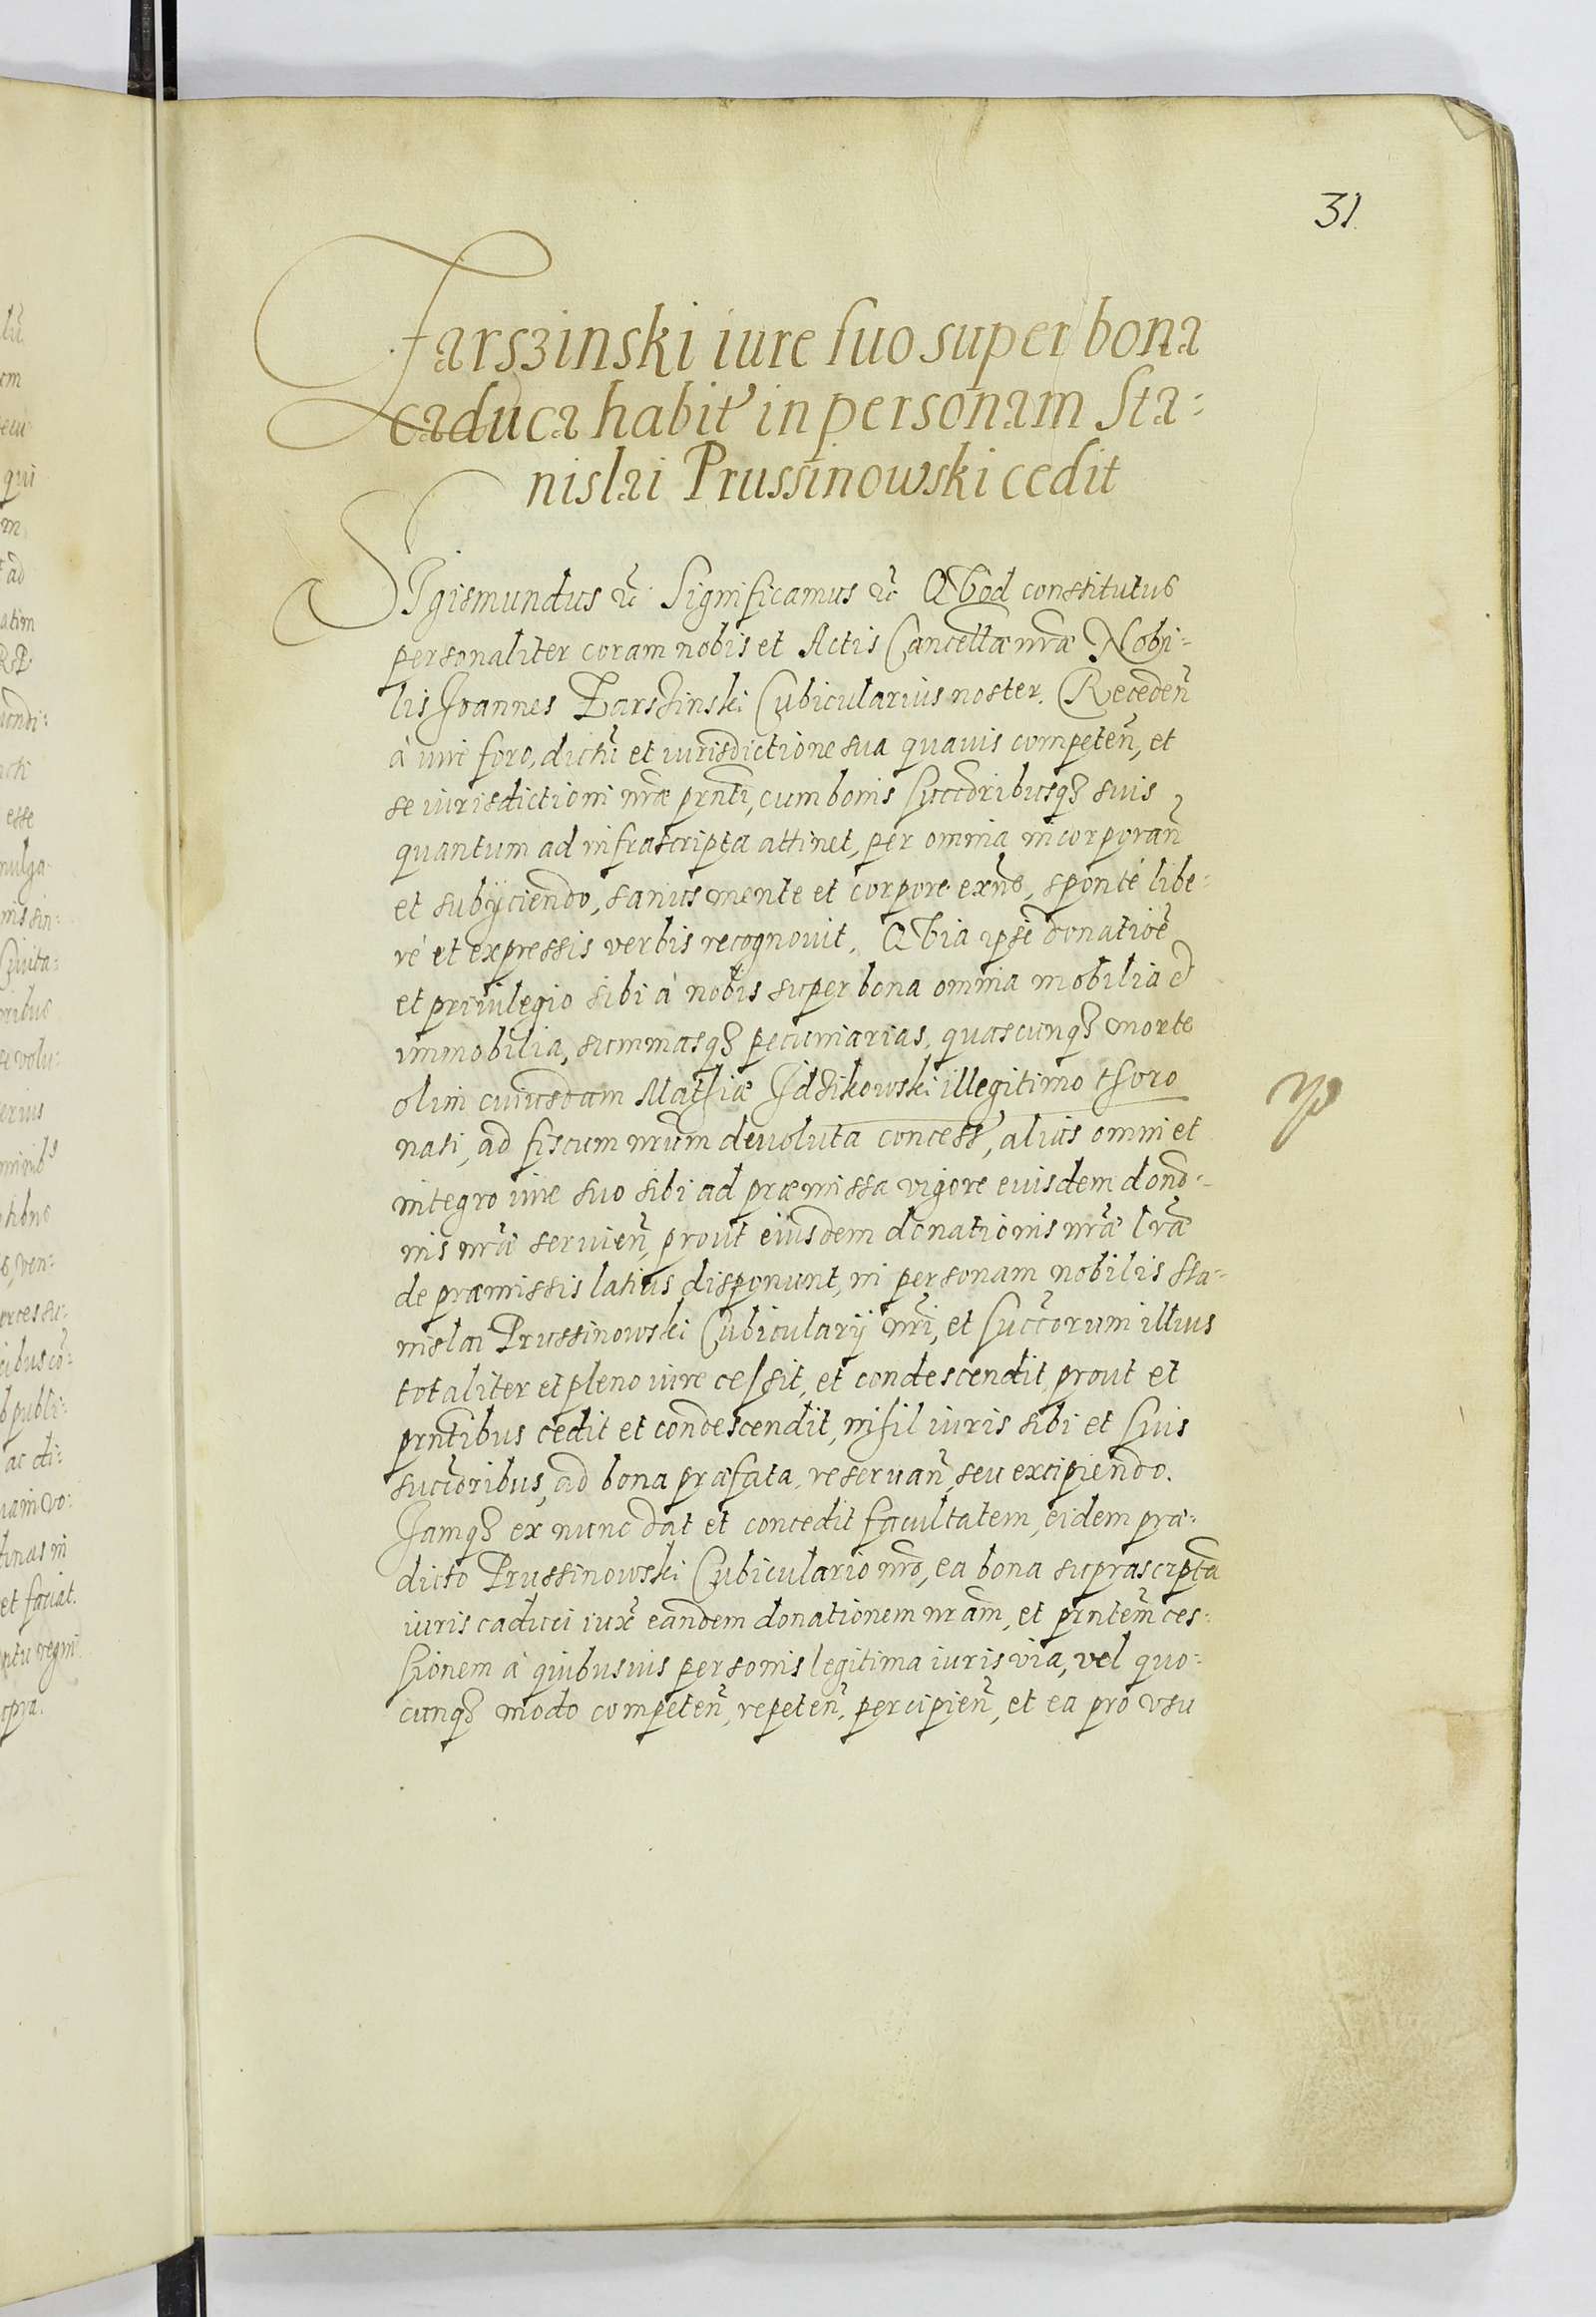 31
Farszinski iure suo super bona
caduca habit' in personam Sta=
nislai Prussinowski cedit
SIgismundus &c̃ Significamus &c̃ QVod constitutus
personaliter coram nobis et Actis Cancellæ nr̃æ Nobi=
lis Joannes Farszinski Cubicularius noster. Recedeñ
à iure foro, dictũ et iurisdictione sua quauis competeñ, et
se iurisdictioni nr̃æ prñti, cum bonis succõribusq₃ suis
quantum ad infrascripta attinet, per omnia incorporañ
et subÿciendo, sanus mente et corpore exñs, sponté libe=
ré et expressis verbis recognouit, QVia ipse donatiõe
et priuilegio sibi à nobis super bona omnia mobilia et
immobilia, summasq₃ pecuniarias, quascunq₃ morte
olim cuiusdam Mathiæ Idzikowski illegitimo thoro
nati, ad fiscum nr̃um deuoluta concess', alius omni et
integro iure suo sibi ad præmissa vigore euisdem donõ=
nis nr̃æ seruieñ, prout eiusdem donationis nr̃æ lr̃æ
de præmissis latius disponunt, in personam nobilis Sta=
nislai Prussinowski Cubicularÿ nr̃i, et succ̃orum illius
totaliter et pleno iure cessit, et condescendit, prout et
prñtibus cedit et condescendit, nihil iuris sibi et suis
succ̃oribus, ad bona præfata, reseruañ, seu excipiendo.
Jamq₃ ex nunc dat et concedit facultatem, eidem præ=
dicto Prussinowski Cubiculario nr̃o, ea bona suprascripta
iuris caduci iux̃ eandem donationem nr̃am, et prñtem ces=
sionem à quibusuis personis legitima iuris via, vel quo=
cunq₃ modo competeñ, repeteñ, percipieñ, et ea pro vsu